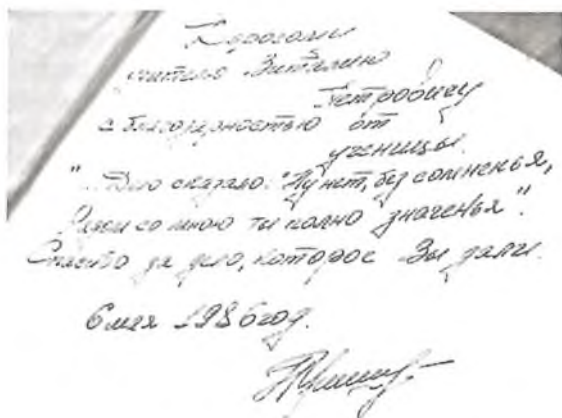 Дорогому
учителю Виталию
Петровичу
с благодарностью от
ученицы.
"...Дело сказало: "Ну нет, без сомненья,
Рядом со мною ты полно значенья".
Спасибо за дело, которое Вы дали.
6 мая 1986 год.